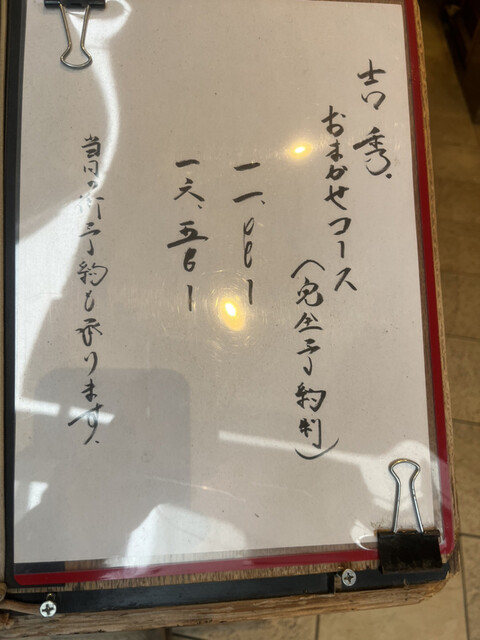 吉秀
おまかせコース
(完全予約制)
一一、〇〇〇ー
一六、五〇〇ー
当日の予約も承ります。